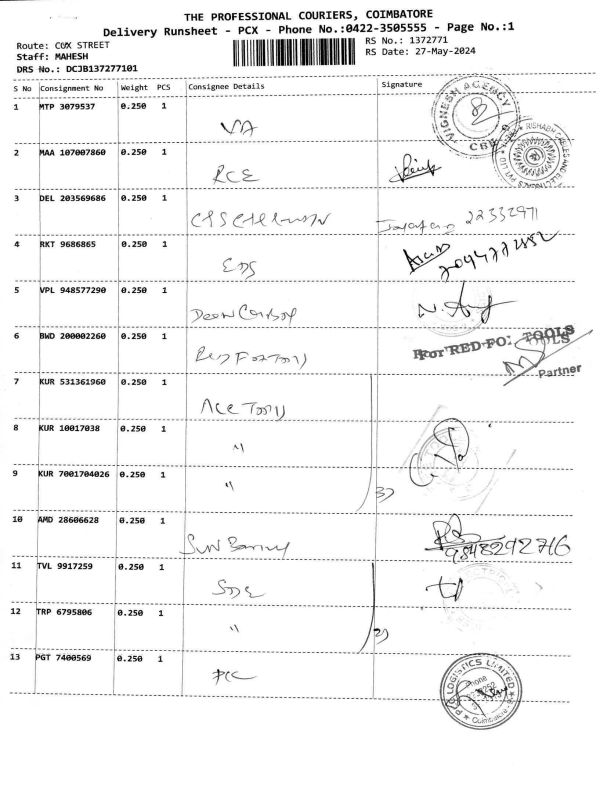 THE PROFESSIONAL COURIERS, COIMBATORE
Delivery Runsheet - PCX - Phone No.:0422-3505555 - Page No.:1
Route: COX STREET
RS No.: 1372771
Staff: MAHESH
RS Date: 27-May-2024
DRS No.: DCJB137277101
S No Consignment No Weight PCS Consignee Details Signature
1 MTP 3079537 0.250 1 VA
VIGNESH AGENCY CBE
2 MAA 107007860 0.250 1 RCE
RISHABH CABLES AND
3 DEL 203569686 0.250 1 22332971
4 RKT 9686865 0.250 1 EDS
5 VPL 948577290 0.250 1
6 BWD 200002260 0.250 1 Red Fox Tools
For RED FOX TOOLS
Partner
7 KUR 531361960 0.250 1 Ace Tools
8 KUR 10017038 0.250 1 "
9 KUR 7001704026 0.250 1 " 3)
10 AMD 28606628 0.250 1 Sun
11 TVL 9917259 0.250 1 SDE
12 TRP 6795806 0.250 1 " 2)
13 PGT 7400569 0.250 1 PLC
LOGISTICS LIMITED
Phone
Coimbatore